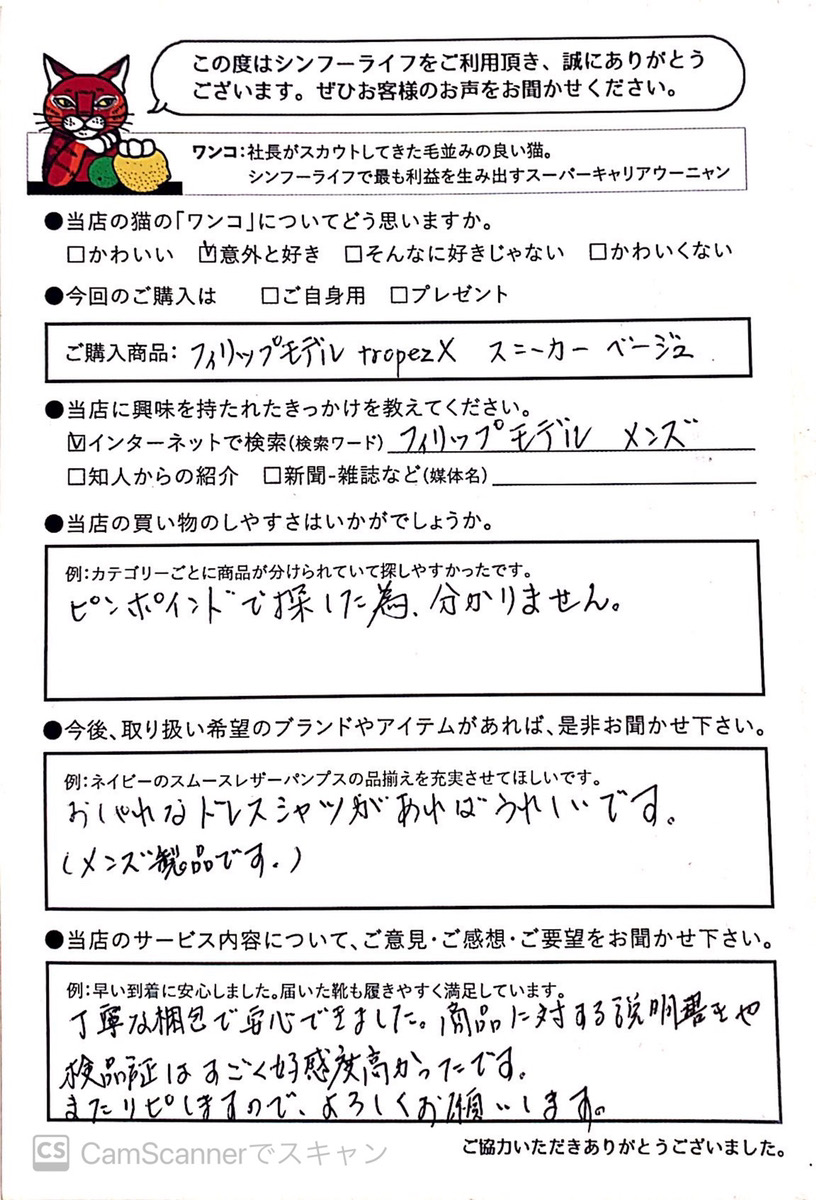 この度はシンフーライフをご利用頂き、誠にありがとう
ございます。ぜひお客様のお声をお聞かせください。
ワンコ:社長がスカウトしてきた毛並みの良い猫。
シンフーライフで最も利益を生み出すスーパーキャリアウーニャン
●当店の猫の「ワンコ」についてどう思いますか。
□かわいい ☑意外と好き □そんなに好きじゃない □かわいくない
●今回のご購入は □ご自身用 □プレゼント
ご購入商品: フィリップモデル tropez X スニーカー ベージュ
●当店に興味を持たれたきっかけを教えてください。
☑インターネットで検索(検索ワード) フィリップモデル メンズ
□知人からの紹介 □新聞-雑誌など(媒体名)
●当店の買い物のしやすさはいかがでしょうか。
例:カテゴリーごとに商品が分けられていて探しやすかったです。
ピンポイントで探した為、分かりません。
●今後、取り扱い希望のブランドやアイテムがあれば、是非お聞かせ下さい。
例:ネイビーのスムースレザーパンプスの品揃えを充実させてほしいです。
おしゃれなドレスシャツがあればうれしいです。
(メンズ製品です。)
●当店のサービス内容について、ご意見・ご感想・ご要望をお聞かせ下さい。
例:早い到着に安心しました。届いた靴も履きやすく満足しています。
丁寧な梱包で安心できました。商品に対する説明書きや
検品証はすごく好感度高かったです。
またリピしますので、よろしくお願いします。
ご協力いただきありがとうございました。
CS CamScannerでスキャン